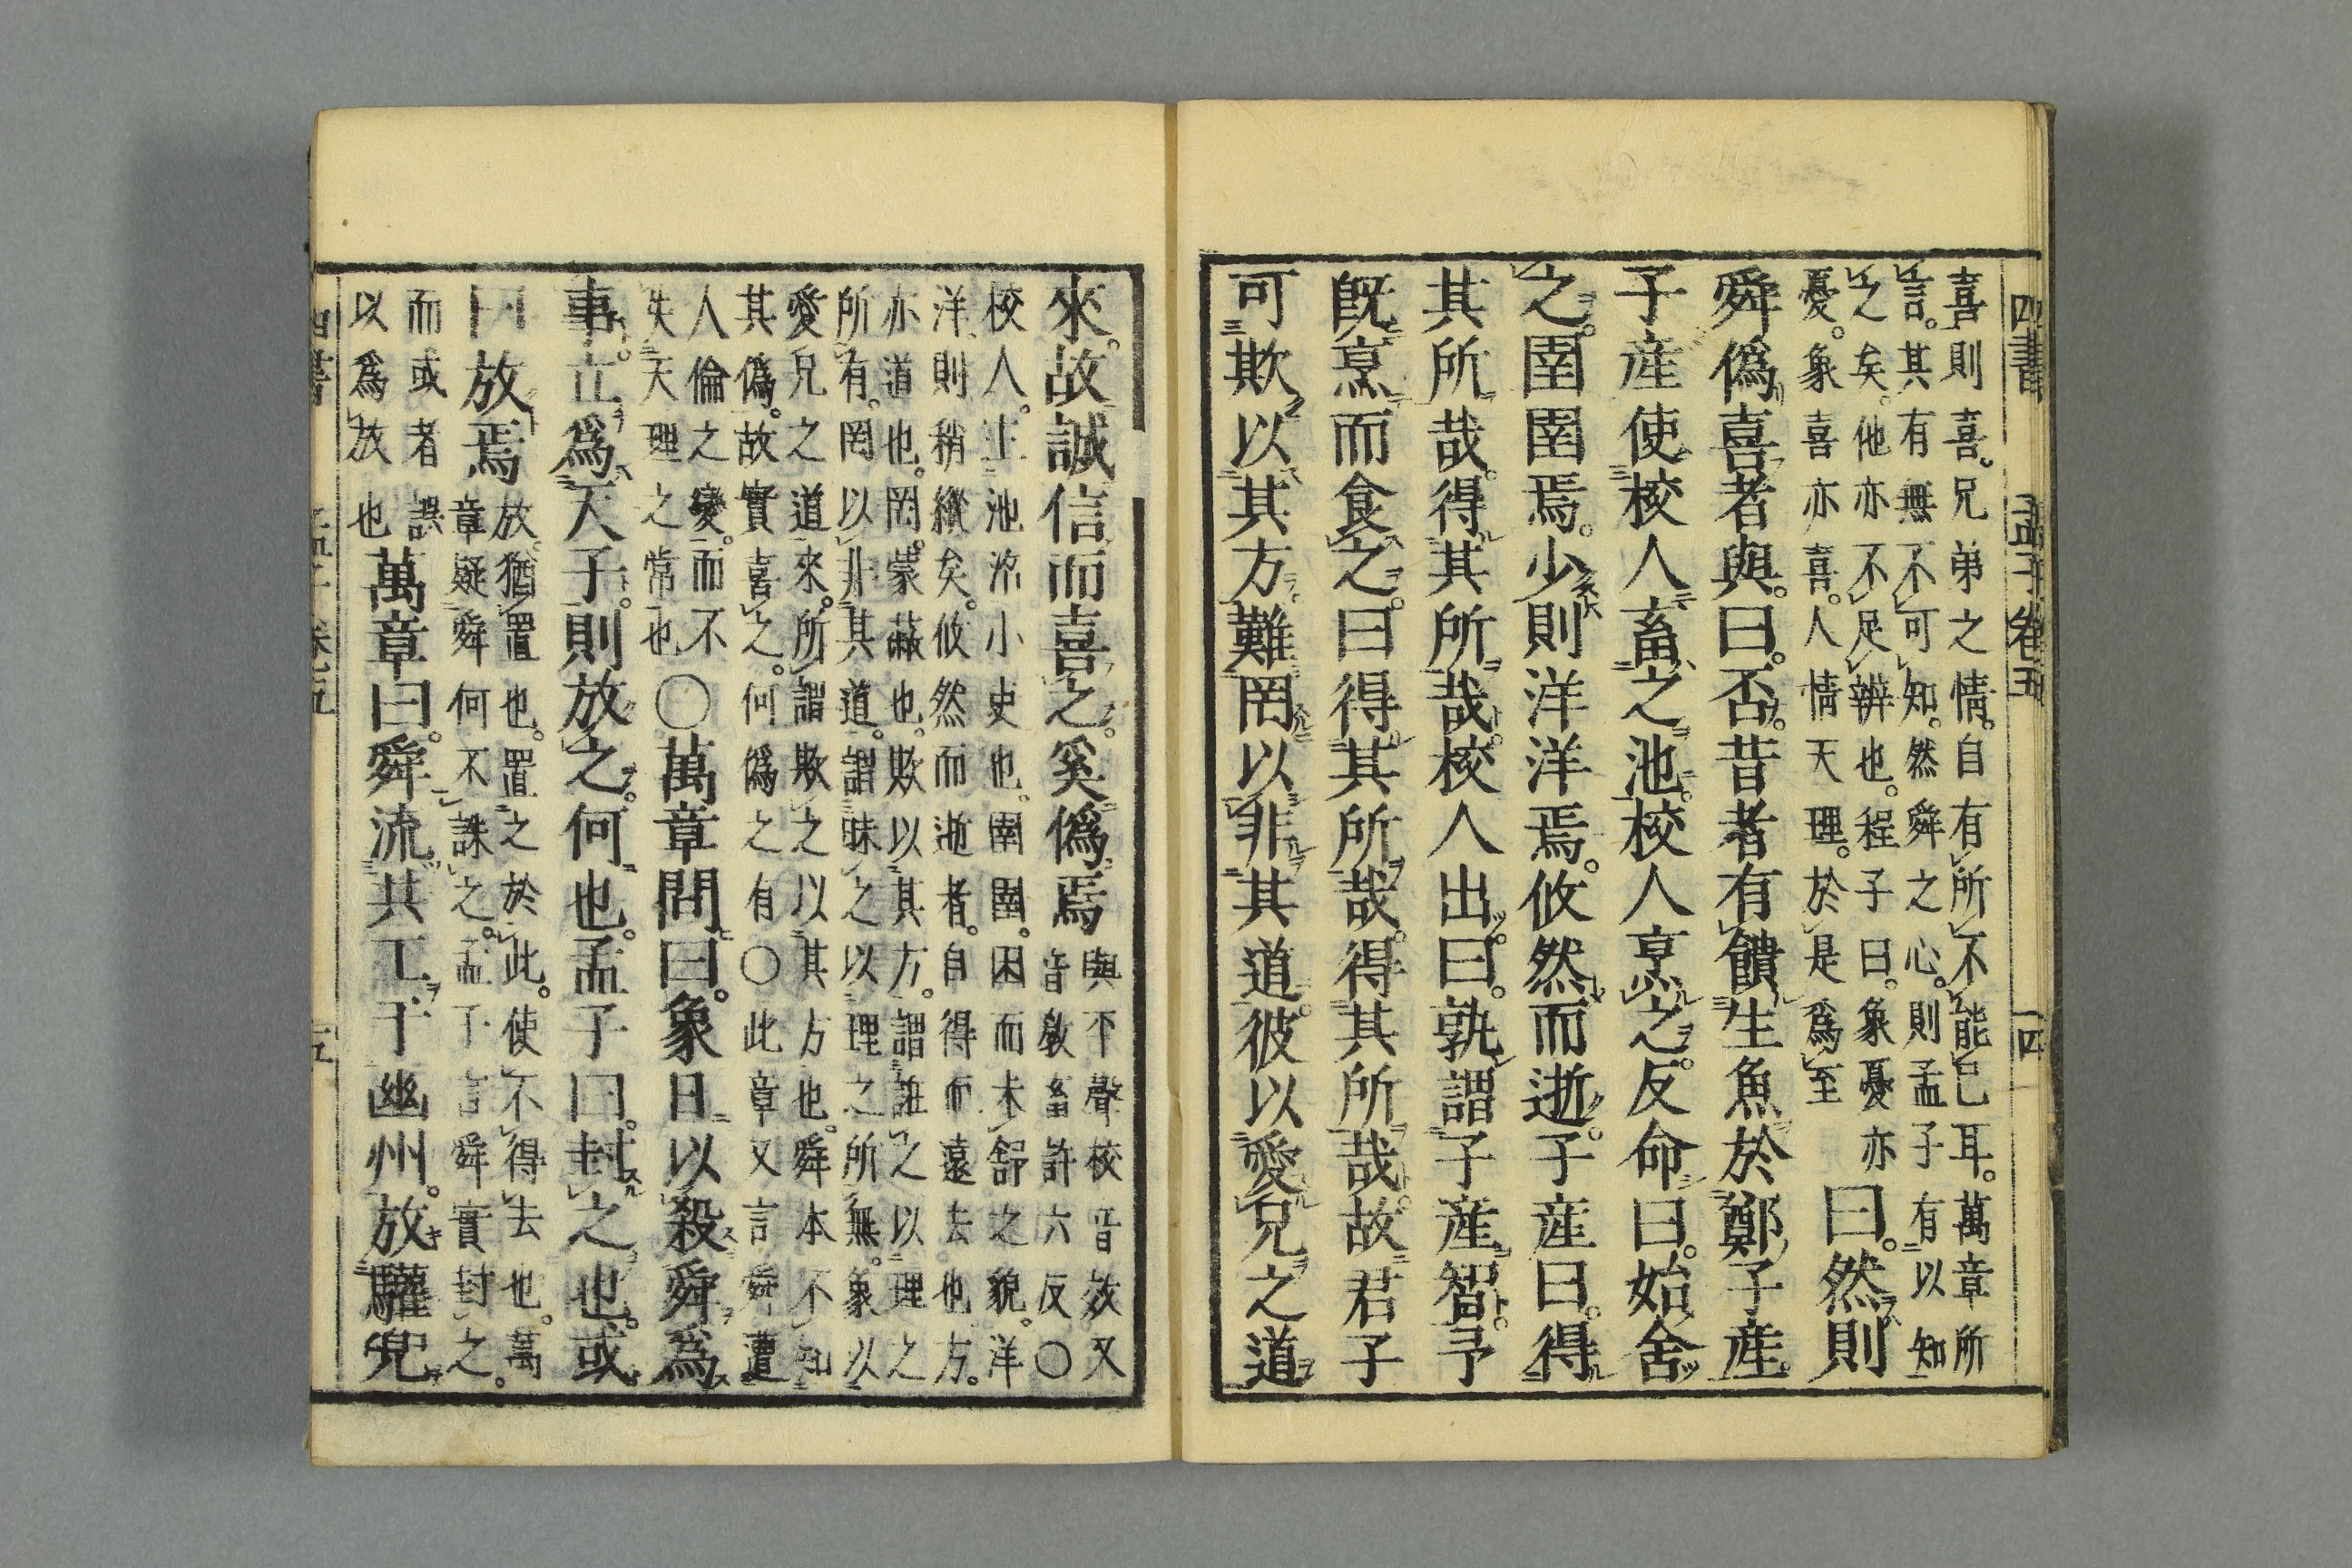 四書 孟子卷五 十四
喜則喜。兄弟之情。自有所不能已耳。萬章所
言。其有無不可知。然舜之心。則孟子有以知
之矣。他亦不足辨也。程子曰。象憂亦
憂。象喜亦喜。人情天理。於是爲至
曰。然則
舜僞喜者與。曰。否。昔者有饋生魚於鄭子產。
子產使校人畜之池。校人烹之。反命曰。始舍
之。圉圉焉。少則洋洋焉。攸然而逝。子產曰。得
其所哉。得其所哉。校人出。曰。孰謂子產智。予
旣烹而食之。曰得其所哉。得其所哉。故君子
可欺以其方。難罔以非其道。彼以愛兄之道
來。故誠信而喜之。奚僞焉
與平聲校音效又
音敎畜許六反〇
校人。主池沼小吏也。圉圉。困而未舒之貌。洋
洋。則稍縱矣。攸然而逝者。自得而遠去也。方。
亦道也。罔。蒙蔽也。欺以其方。謂誑之以理之
所有。罔以非其道。謂昧之以理之所無。象以
愛兄之道來。所謂欺之以其方也。舜本不知
其僞。故實喜之。何僞之有〇此章又言舜遭
人倫之變。而不
失天理之常也
〇萬章問曰。象日以殺舜爲
事。立爲天子。則放之。何也。孟子曰。封之也。或
曰放焉
放。猶置也。置之於此。使不得去也。萬
章疑舜何不誅之。孟子言舜實封之。
而或者誤
以爲放也
萬章曰。舜流共工于幽州。放驩兜
四書 孟子卷五 十五